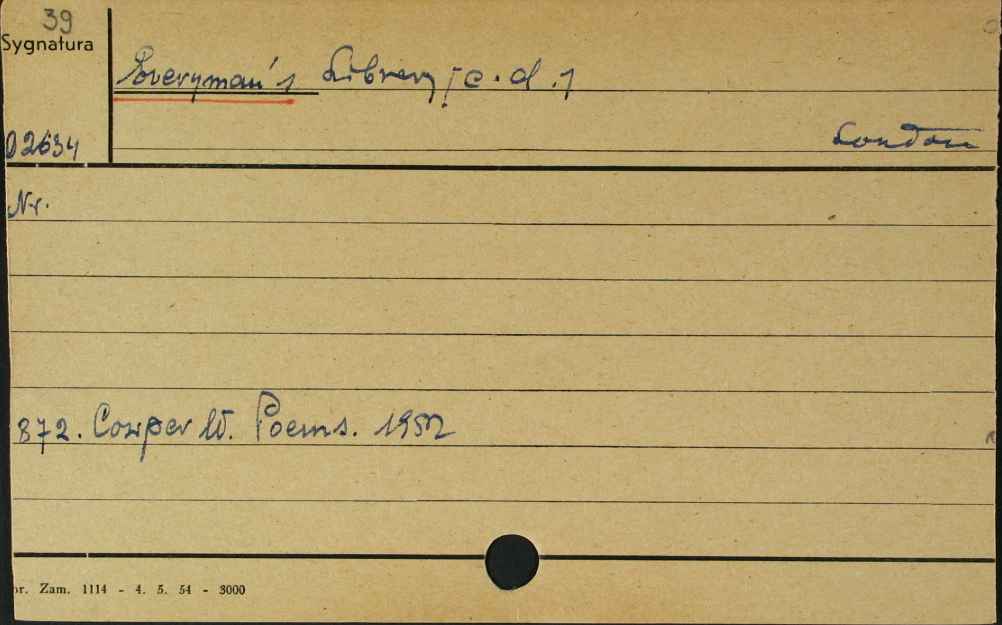 39
Sygnatura
Everyman's Library [c.d.]
02634
London
Nr.
872. Cowper W. Poems. 1952
r. Zam. 1114 - 4. 5. 54 - 3000